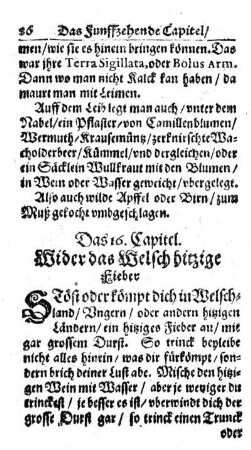 86 Das Funffzehende Capitel/
men/wie sie es hinein bringen können. Das
war ihre Terra Sigillata, oder Bolus Arm.
Dann wo man nicht Kalck kan haben / da
maurt man mit Leimen.
Auff dem Leib legt man auch / vnter dem
Nabel / ein Pflaster / von Camillenblumen /
Wermuth / Krausemüntz / zerknirschte Wa-
cholderbeer / Kümmel / vnd dergleichen / oder
ein Säcklein Wullkraut mit den Blumen /
in Wein oder Wasser geweicht / vbergelegt.
Also auch wilde Apffel oder Birn / zum
Muß gekocht vmbgeschlagen.
Das 16. Capitel.
Wider das Welsch hitzige
Fieber
Stöst oder kömpt dich in Welsch-
land / Vngern / oder andern hitzigen
Ländern / ein hitziges Fieber an / mit
gar grossem Durst. So trinck beyleibe
nicht alles hinein / was dir fürkömpt / son-
dern brich deiner Lust abe. Mische den hitzi-
gen Wein mit Wasser / aber je weniger du
trinckest / je besser es ist / vberwindt dich der
grosse Durst gar / so trinck einen Trunck
oder